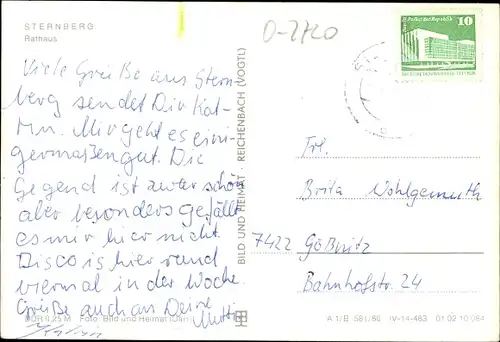 STERNBERG
Rathaus
O-2720
Viele Grüße aus Stern-
berg sendet Dir Kat-
rin. Mir geht es eini-
germaßen gut. Die
Gegend ist zwar schön
aber besonders gefällt
es mir hier nicht.
Disco ist hier rund
viermal in der Woche.
Grüße auch an Deine
Mutti
DDR 0,25 M Foto: Bild und Heimat
BILD UND HEIMAT · REICHENBACH (VOGTL)
10
Frl.
Brita Wohlgemuth
7422 Gößnitz
Bahnhofstr. 24
A 1/B 581/86 IV-14-483 01 02 10 084